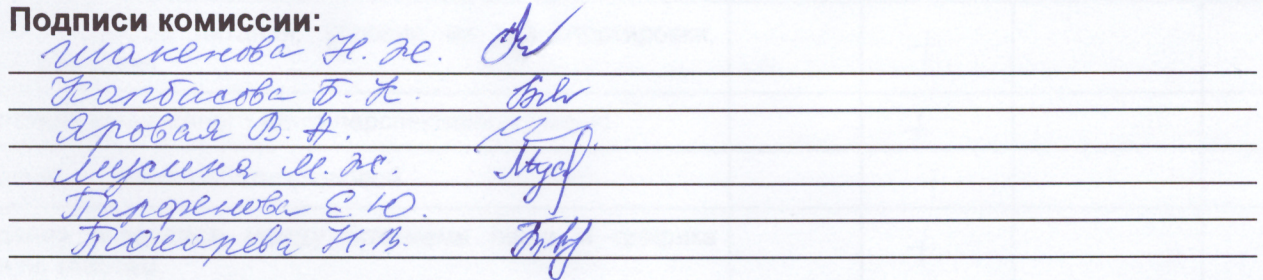 Подписи комиссии:
Шакенова Н. Ж.
Капбасова Б. К.
Яровая В. А.
Мусина М. Ж.
Парфенова Е. Ю.
Токарева Н. В.